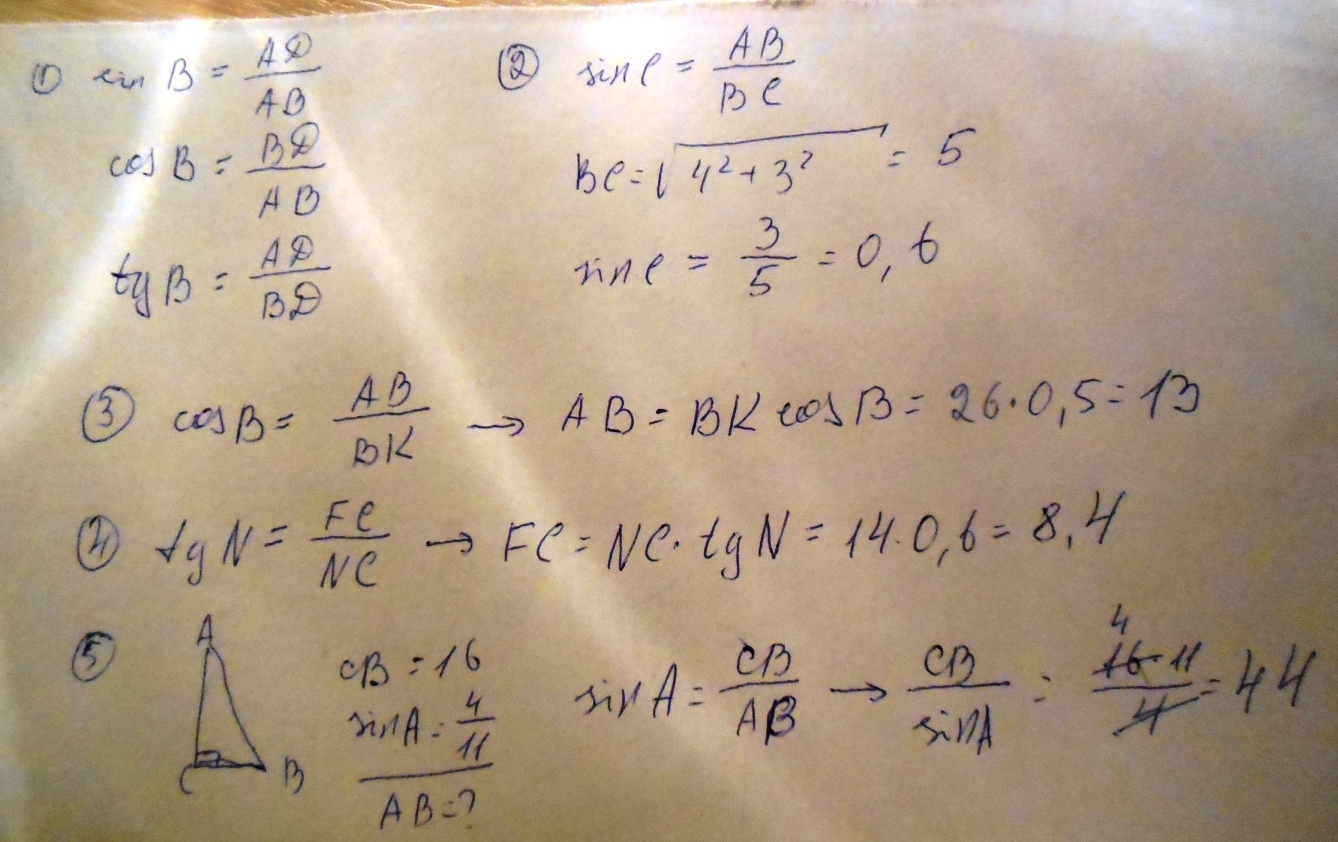 ① sin B = AD/AB
cos B = BD/AB
tg B = AD/BD
② sin C = AB/BC
BC = √(4² + 3²) = 5
sin C = 3/5 = 0,6
③ cos B = AB/BK → AB = BK cos B = 26·0,5 = 13
④ tg N = FC/NC → FC = NC · tg N = 14·0,6 = 8,4
⑤ A C B
CB = 16
sin A = 4/11
AB = ?
sin A = CB/AB → CB/sin A = 4 16·11/4 = 44